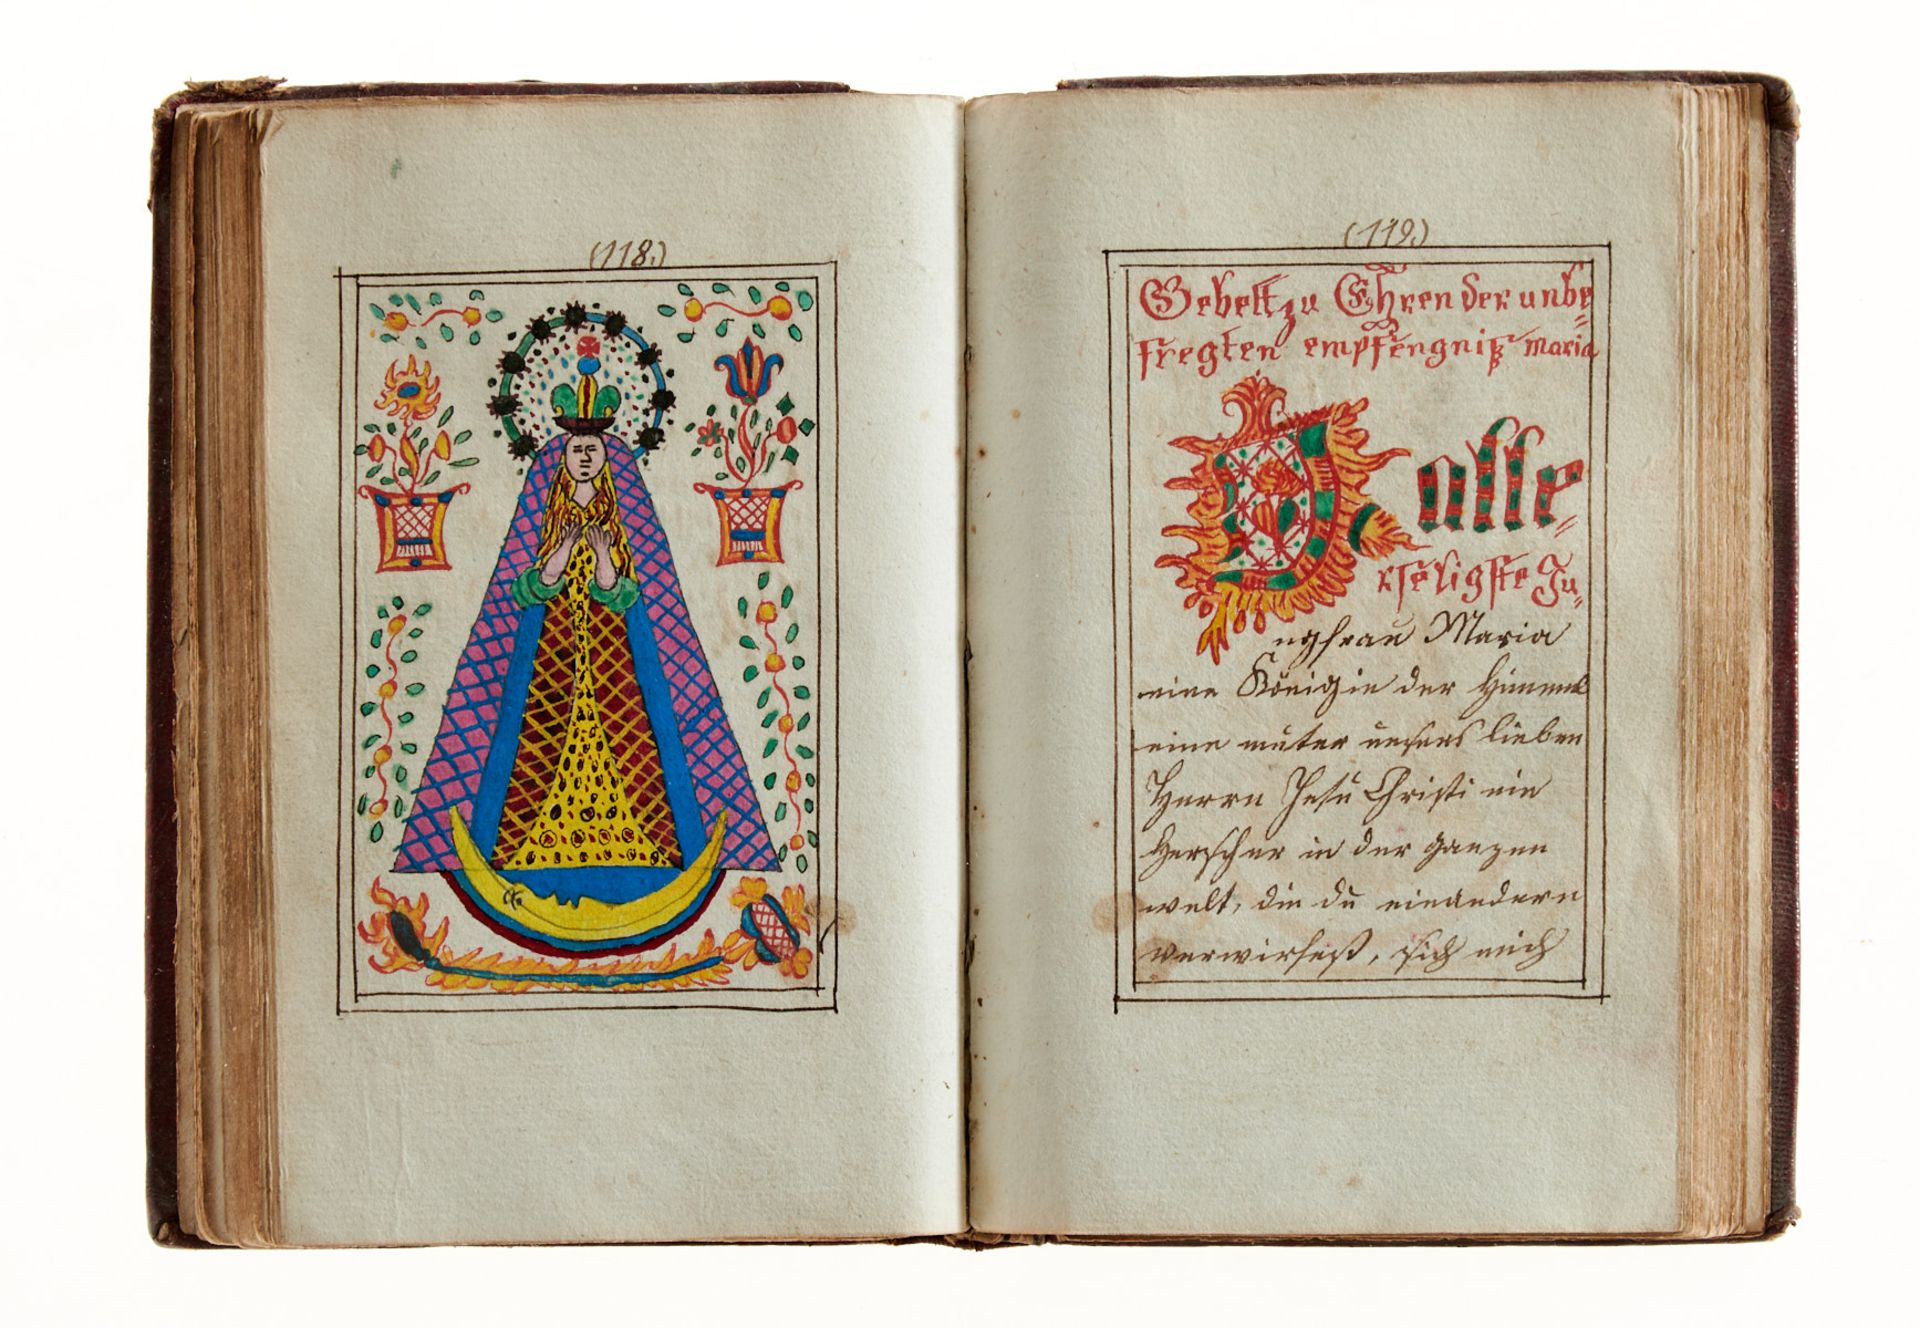 (118.)
(119.)
Gebett zu Ehren der unbe=
fregten empfengniß maria
O. alle=
rseligste Ju=
ngfrau Maria
eine Königin der Himmel
eine muter unsers lieben
Herrn Jesu Christi ein
Herscher in der ganzen
welt, die du einandern
verwirfest, sich mich